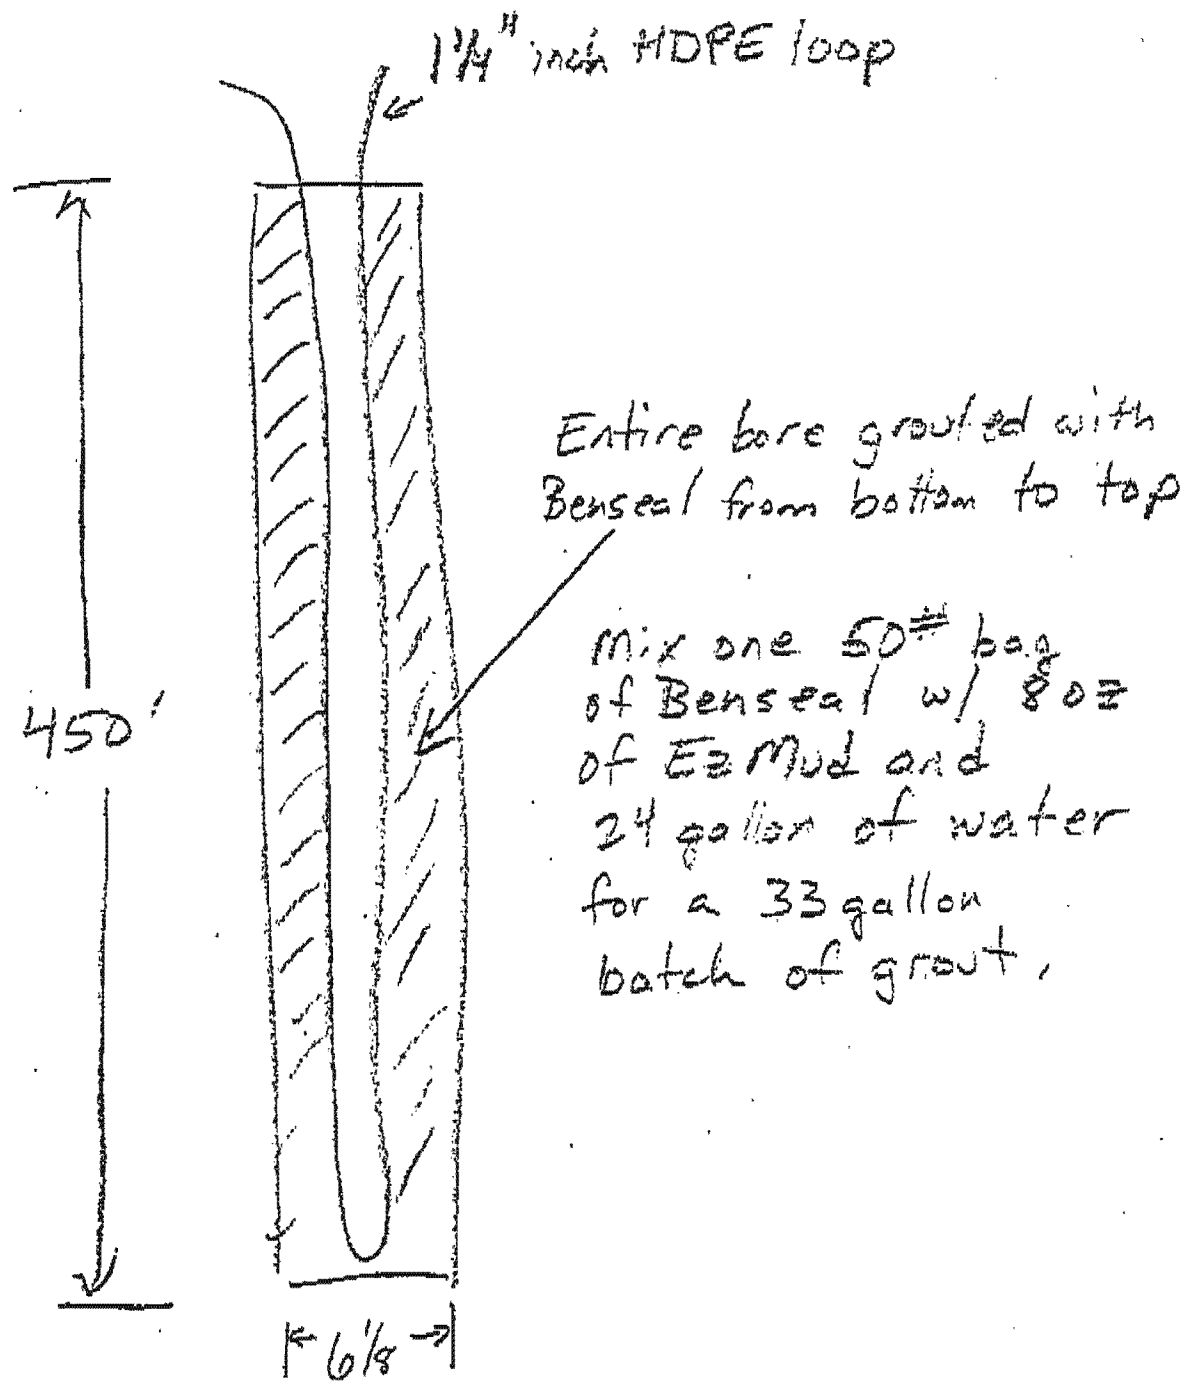 1 1/4" inch HDPE loop
Entire bore grouted with
Benseal from bottom to top
Mix one 50# bag
of Benseal w/ 8 oz
of EZ Mud and
24 gallon of water
for a 33 gallon
batch of grout.
450'
6 1/8